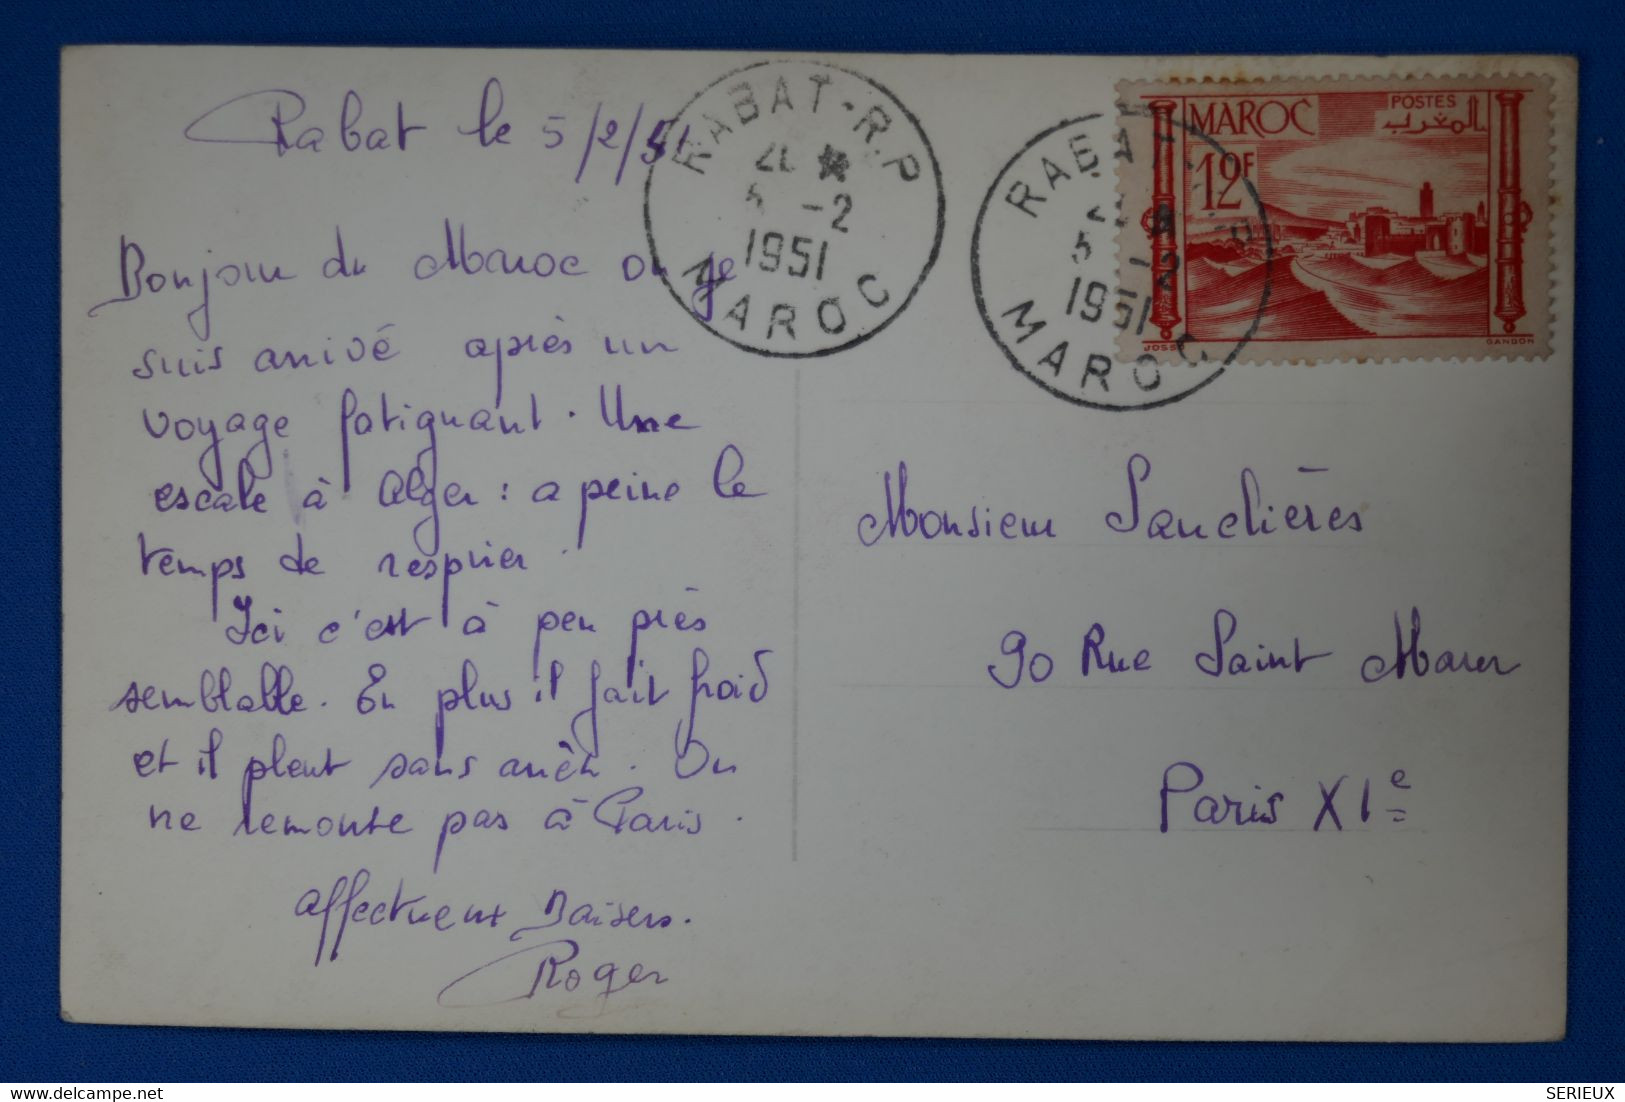 Rabat le 5/2/51
Bonjour du Maroc où je
suis arrivé après un
voyage fatiguant. Une
escale à Alger : a peine le
temps de respirer.
Ici c'est à peu près
semblable. En plus il fait froid
et il pleut sans arrêt. On
ne remonte pas à Paris.
Affectueux Baisers.
Roger
RABAT-R.P
5 -2
1951
MAROC
RABAT-R.P
5 -2
1951
MAROC
MAROC
POSTES
المغرب
12F
JOSSE
GANDON
Monsieur Sanclières
90 Rue Saint Maur
Paris XIe
SERIEUX